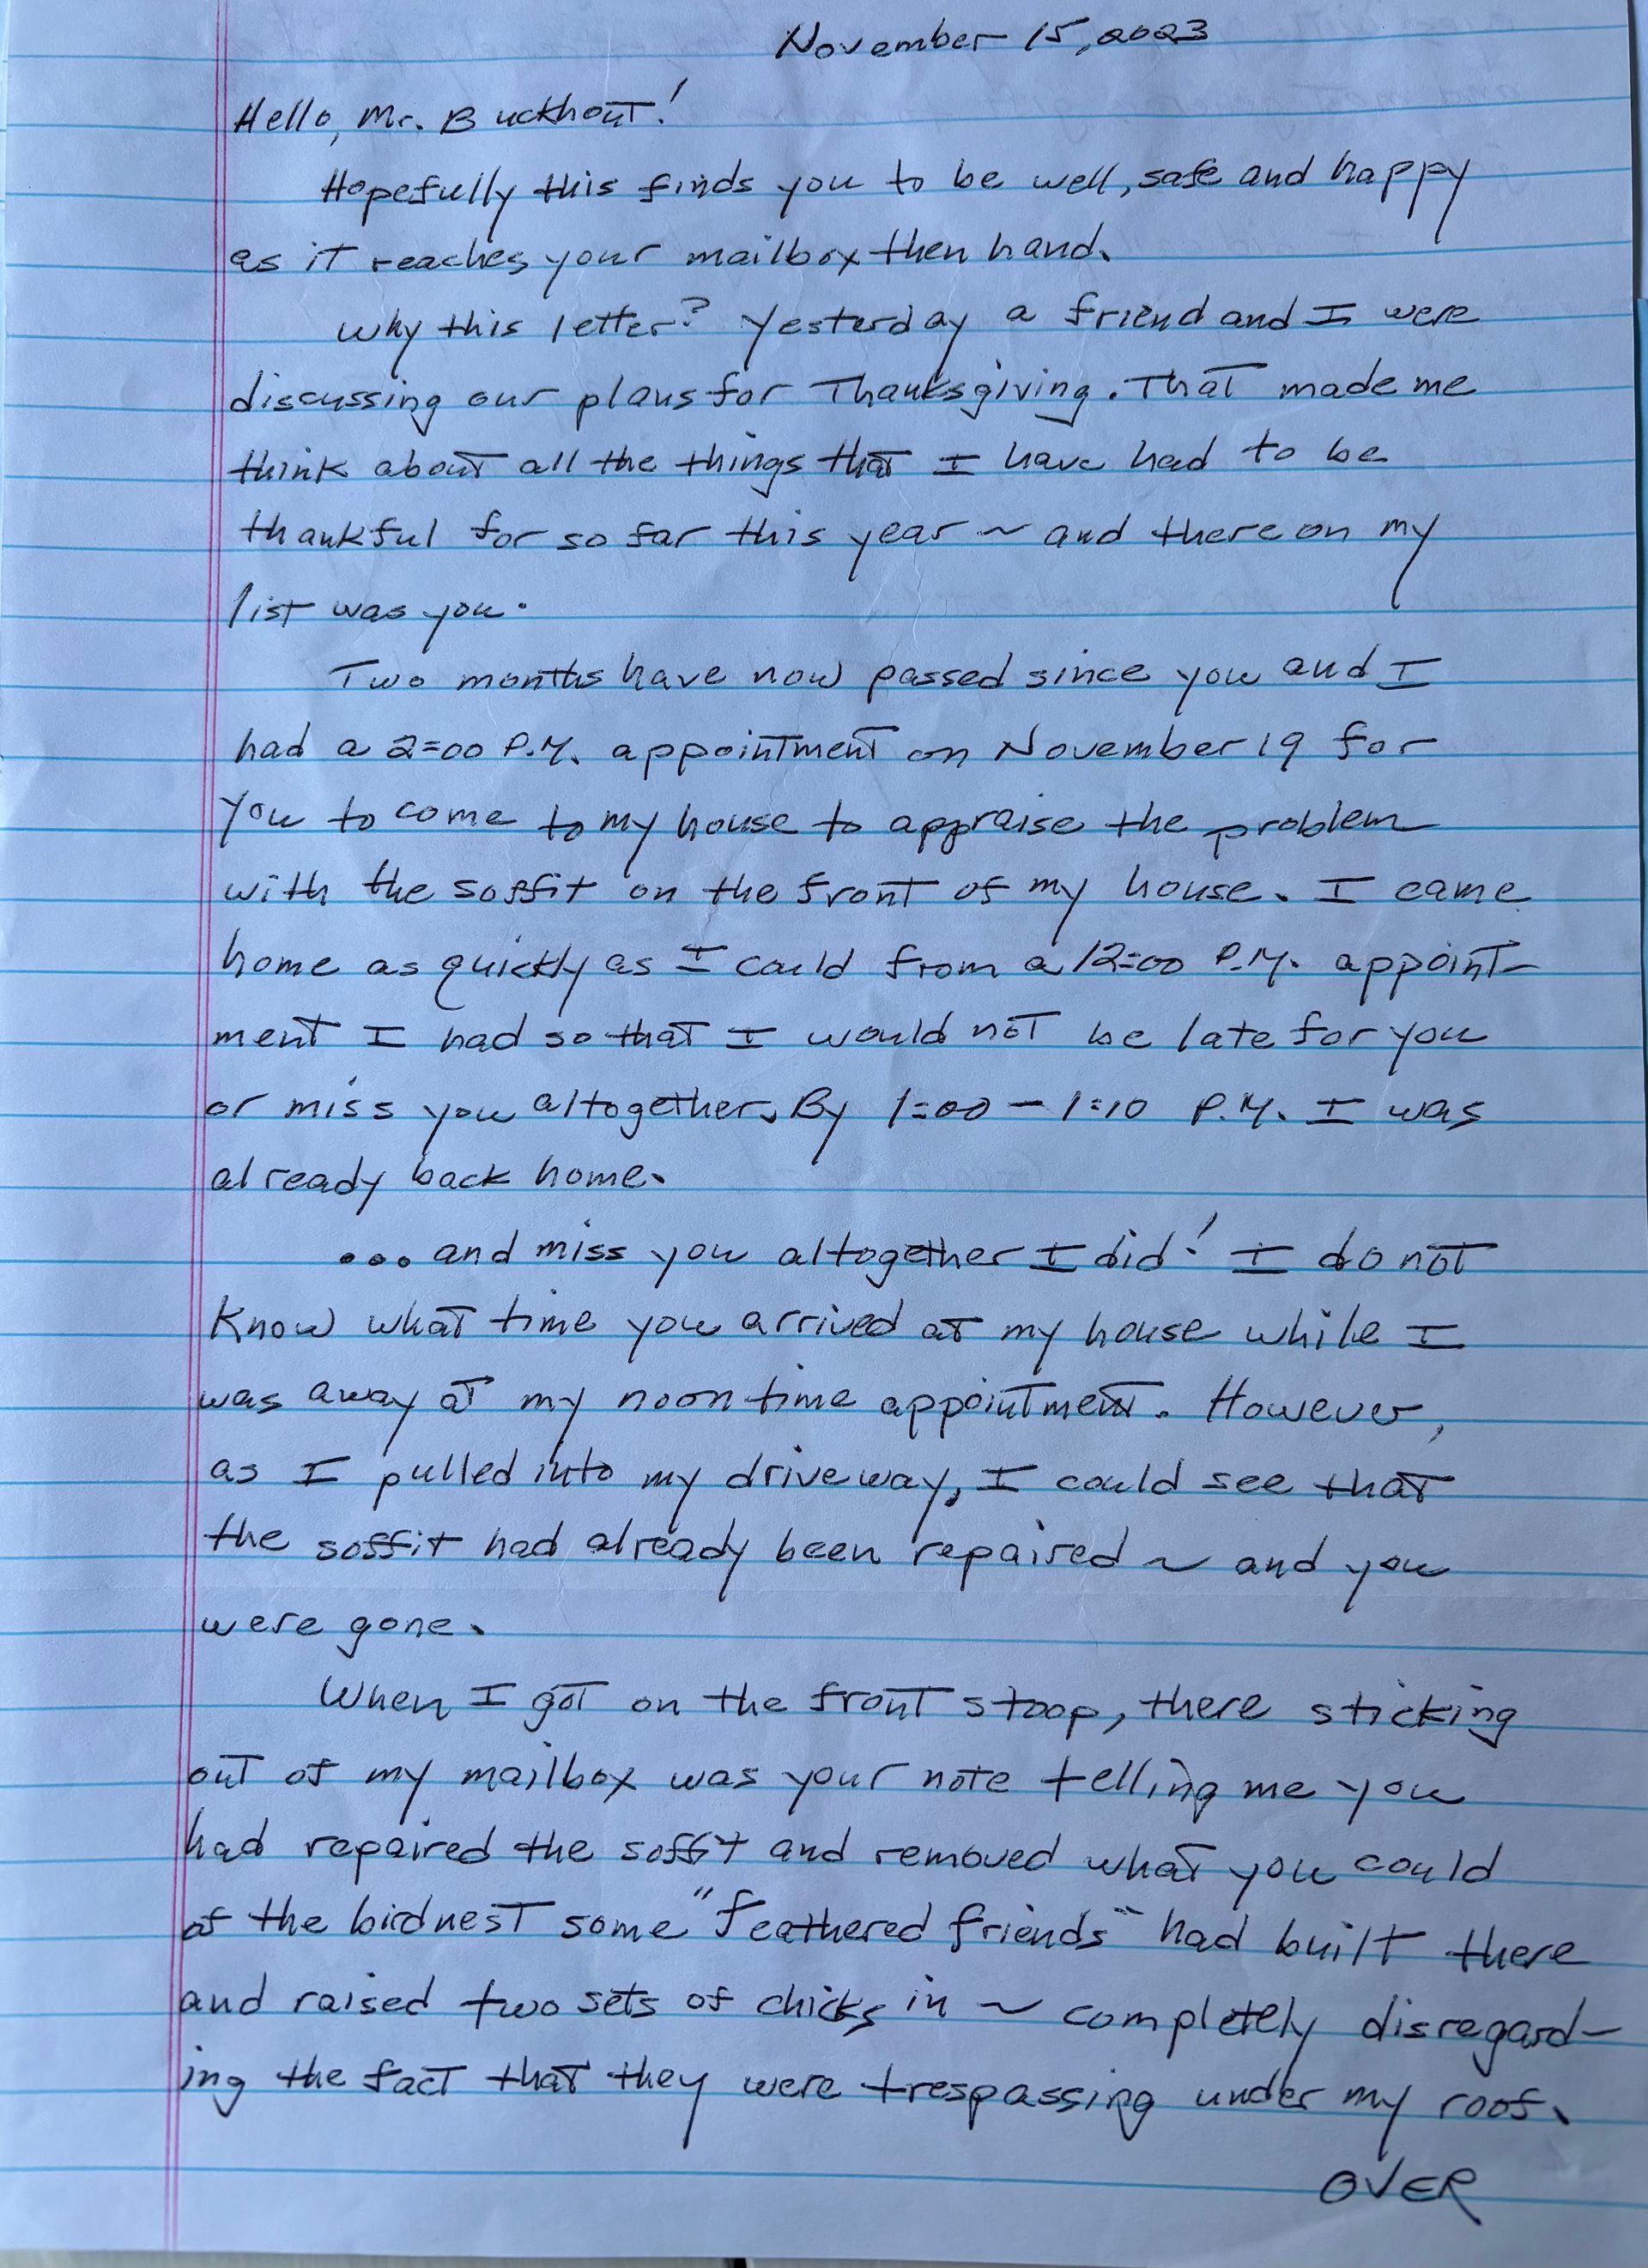 November 15, 2023
Hello, Mr. Buckhout!
Hopefully this finds you to be well, safe and happy
as it reaches your mailbox then hand.
Why this letter? Yesterday a friend and I were
discussing our plans for Thanksgiving. That made me
think about all the things that I have had to be
thankful for so far this year ~ and there on my
list was you.
Two months have now passed since you and I
had a 2:00 P.M. appointment on November 19 for
you to come to my house to appraise the problem
with the soffit on the front of my house. I came
home as quickly as I could from a 12:00 P.M. appoint-
ment I had so that I would not be late for you
or miss you altogether. By 1:00 - 1:10 P.M. I was
already back home.
... and miss you altogether I did! I do not
know what time you arrived at my house while I
was away at my noontime appointment. However,
as I pulled into my driveway, I could see that
the soffit had already been repaired ~ and you
were gone.
When I got on the front stoop, there sticking
out of my mailbox was your note telling me you
had repaired the soffit and removed what you could
of the birdnest some "feathered friends" had built there
and raised two sets of chicks in ~ completely disregard-
ing the fact that they were trespassing under my roof.
OVER